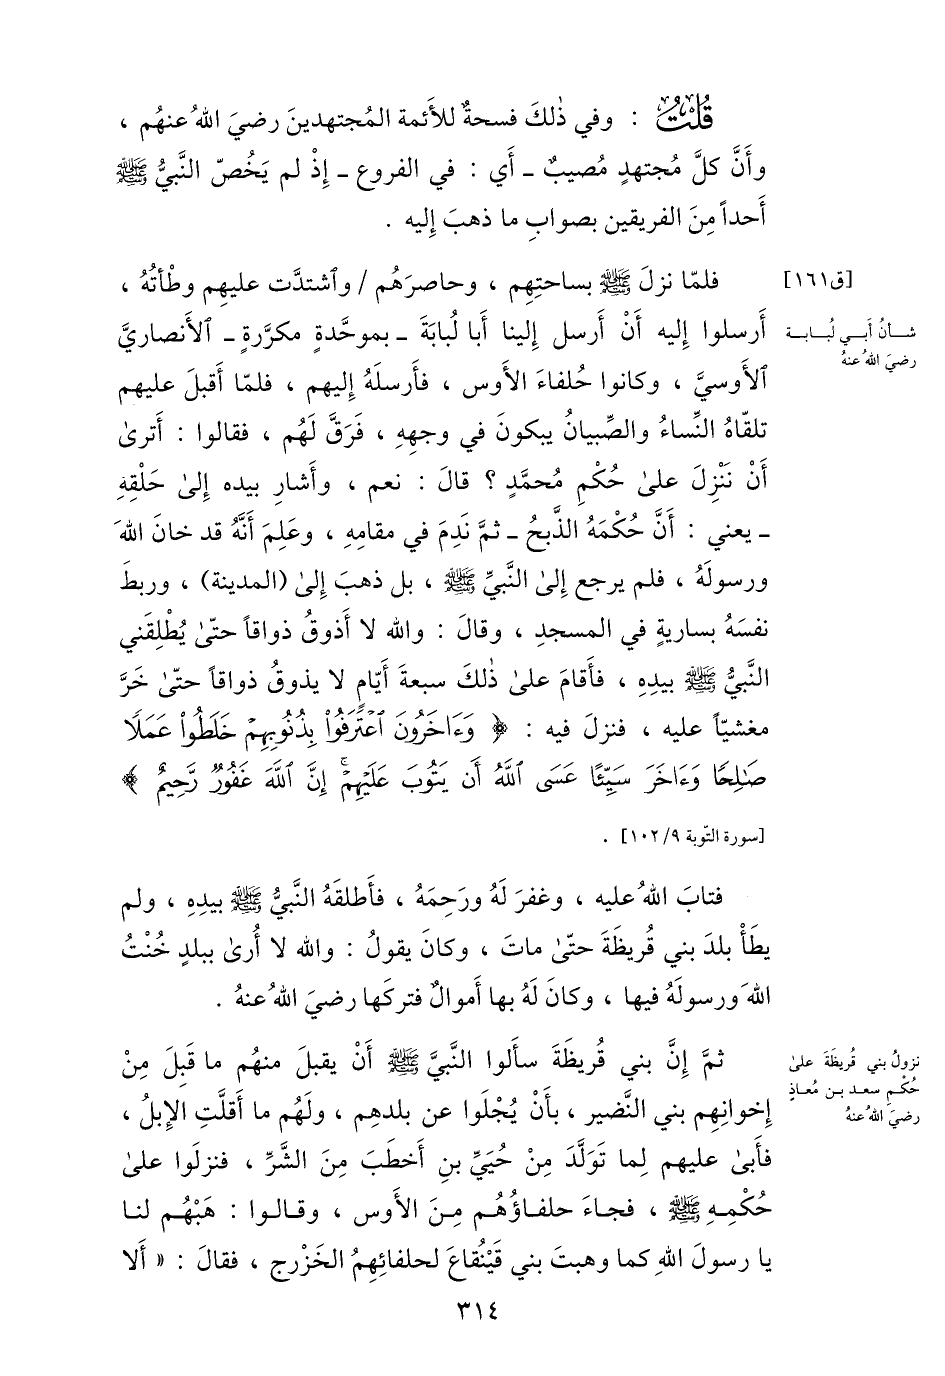 قُلْتُ : وفي ذٰلكَ فسحةٌ للأَئمة المُجتهدينَ رضيَ اللهُ عنهُم ،
وأَنَّ كلَّ مُجتهدٍ مُصيبٌ ـ أَي : في الفروع ـ إِذْ لم يَخُصّ النَّبيُّ ﷺ
أَحداً مِنَ الفريقين بصوابِ ما ذهبَ إِليه .
[ق١٦١]
فلمّا نزلَ ﷺ بساحتِهِم ، وحاصرَهُم / وٱشتدَّت عليهِم وطْأَتُهُ ،
شــأنُ أَبــي لُبــابــة
رضيَ اللهُ عنهُ
أَرسلوا إِليه أَنْ أَرسل إِلينا أَبا لُبابَةَ ـ بموحَّدةٍ مكرَّرةٍ ـ ٱلأَنصاريَّ
ٱلأَوسيَّ ، وكانوا حُلفاءَ الأَوس ، فأَرسلَهُ إِليهم ، فلمّا أَقبلَ عليهم
تلقّاهُ النِّساءُ والصِّبيانُ يبكونَ في وجهِهِ ، فَرَقَّ لَهُم ، فقالوا : أَترىٰ
أَنْ نَنْزِلَ علىٰ حُكْمِ مُحمَّدٍ ؟ قالَ : نعم ، وأَشارِ بيده إِلىٰ حَلْقِهِ
ـ يعني : أَنَّ حُكْمَهُ الذَّبحُ ـ ثمَّ نَدِمَ في مقامِهِ ، وعَلِمَ أَنَّهُ قد خانَ اللهَ
ورسولَهُ ، فلم يرجع إِلىٰ النَّبيِّ ﷺ ، بل ذهبَ إِلىٰ (المدينة) ، وربطَ
نفسَهُ بساريةٍ في المسجدِ ، وقالَ : والله لا أَذوقُ ذواقاً حتّىٰ يُطْلِقَني
النَّبيُّ ﷺ بيدِهِ ، فأَقامَ علىٰ ذٰلكَ سبعةَ أَيّامٍ لا يذوقُ ذواقاً حتّىٰ خَرَّ
مغشيّاً عليه ، فنزلَ فيه : ﴿ وَءَاخَرُونَ ٱعْتَرَفُوا۟ بِذُنُوبِهِمْ خَلَطُوا۟ عَمَلًا
صَـٰلِحًا وَءَاخَرَ سَيِّئًا عَسَى ٱللَّهُ أَن يَتُوبَ عَلَيْهِمْۚ إِنَّ ٱللَّهَ غَفُورٌ رَّحِيمٌ ﴾
[سورة التّوبة ٩/ ١٠٢] .
فتابَ اللهُ عليه ، وغفرَ لَهُ ورَحِمَهُ ، فأَطلقَهُ النَّبيُّ ﷺ بيدِهِ ، ولم
يطَأْ بلدَ بني قُريظَةَ حتّىٰ ماتَ ، وكانَ يقولُ : والله لا أُرىٰ ببلدٍ خُنْتُ
اللهَ ورسولَهُ فيها ، وكانَ لَهُ بها أَموالٌ فتركَها رضيَ اللهُ عنهُ .
نزولُ بني قُريظَةَ علىٰ
حُكْمِ سعـد بـن مُعـاذٍ
رضيَ اللهُ عنهُ
ثمَّ إِنَّ بني قُريظَةَ سأَلوا النَّبيَّ ﷺ أَنْ يقبلَ منهُم ما قَبِلَ مِنْ
إِخوانِهِم بني النَّضير ، بأَنْ يُجْلَوا عن بلدِهِم ، ولَهُم ما أَقلَّتِ الإِبلُ ،
فأَبىٰ عليهِم لِما تَوَلَّدَ مِنْ حُيَيِّ بنِ أَخطَبَ مِنَ الشَّرِّ ، فنزلَوا علىٰ
حُكْمِهِ ﷺ ، فجـاءَ حلفـاؤُهُـم مِـنَ الأَوس ، وقـالـوا : هَبْهُـم لنـا
يا رسولَ اللهِ كما وهبتَ بني قَيْنُقاعَ لحلفائِهِمُ الخَزْرج ، فقالَ : « أَلا
٣١٤